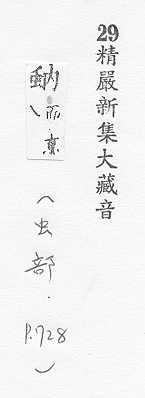 29精嚴新集大藏音
蚋 而
(虫部.P.728)